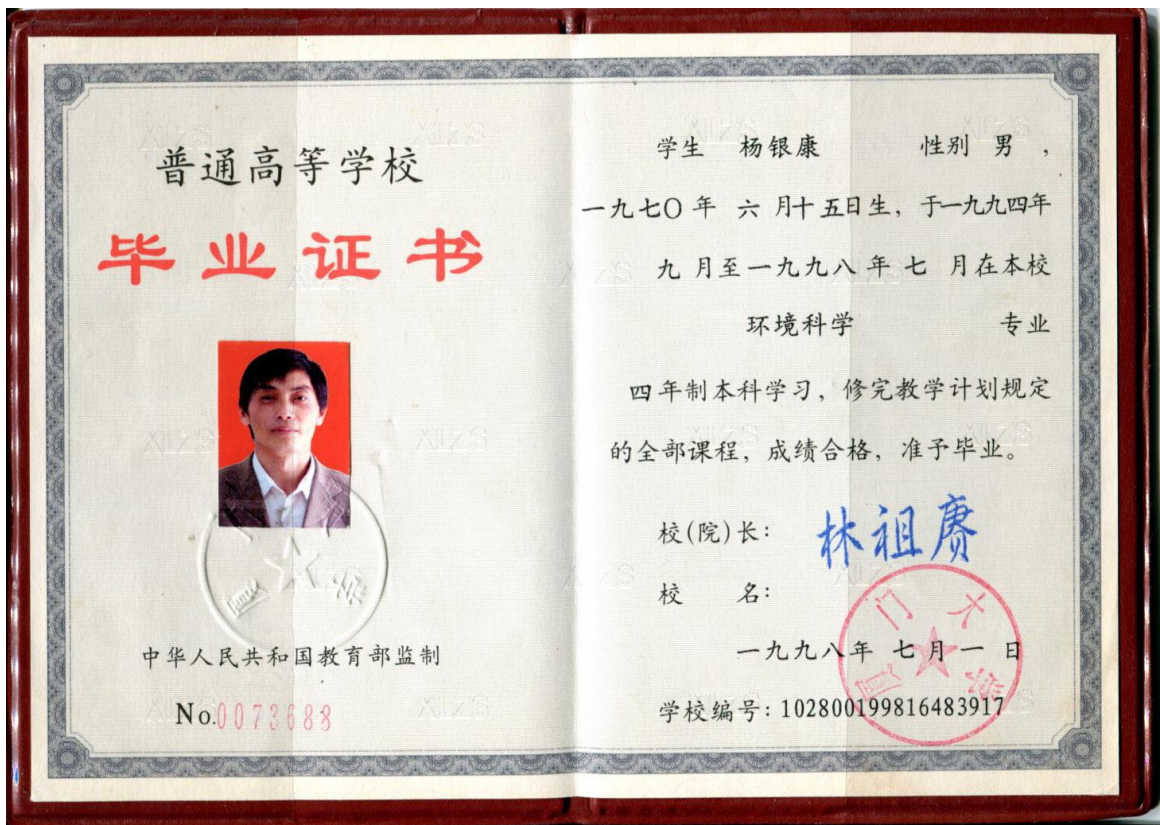 普通高等学校
毕业证书
中华人民共和国教育部监制
No.0073688
学生 杨银康 性别 男，
一九七〇年 六 月十五日生，于一九九四年
九 月至一九九八年 七 月在本校
环境科学 专业
四年制本科学习，修完教学计划规定
的全部课程，成绩合格，准予毕业。
校(院)长： 林祖赓
校 名：
厦门大学
一九九八年 七 月 一 日
学校编号：102800199816483917